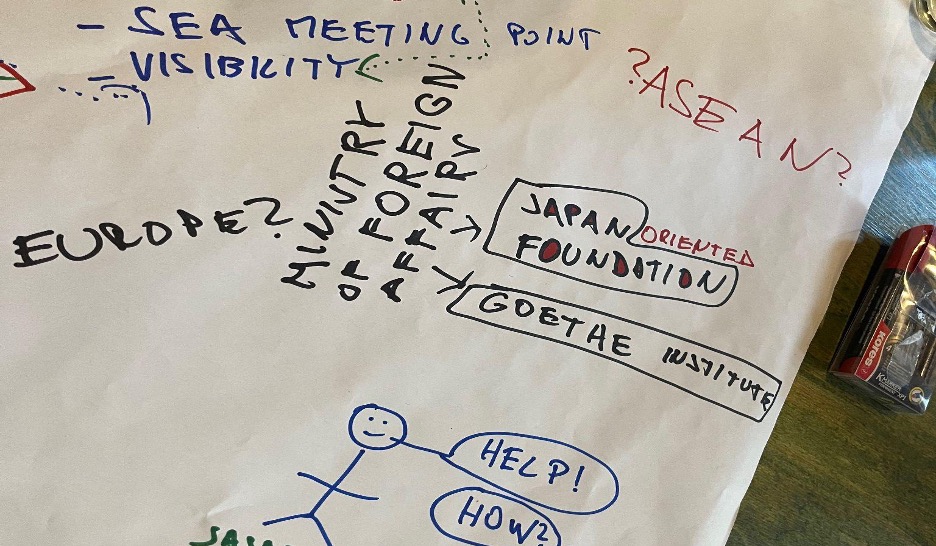 - SEA MEETING POINT
- VISIBILITY
?ASEAN?
EUROPE?
MINNTRY
OF FOREIGN
AFFAIRV
JAPAN ORIENTED
FOUNDATION
GOETHE INSTITUTE
HELP!
HOW?
Kores